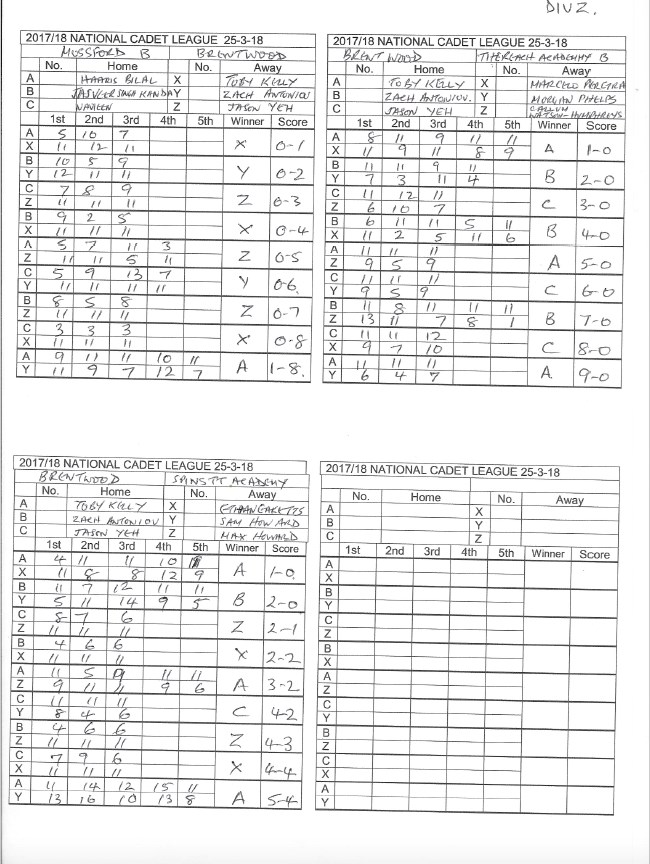 DIV 2.
2017/18 NATIONAL CADET LEAGUE 25-3-18
MOSSFORD B BRENTWOOD
No. Home No. Away
A HAARIS BILAL X TOBY KELLY
B JASVEER SINGH KANDAY Y ZACH ANTONIOU
C NAVEEN Z JASON YEH
1st 2nd 3rd 4th 5th Winner Score
A 5 10 7
X 11 12 11 X 0-1
B 10 5 9
Y 12 11 11 Y 0-2
C 7 8 9
Z 11 11 11 Z 0-3
B 9 2 5
X 11 11 11 X 0-4
A 5 7 11 3
Z 11 11 5 11 Z 0-5
C 5 9 13 7
Y 11 11 11 11 Y 0-6
B 8 5 8
Z 11 11 11 Z 0-7
C 3 3 3
X 11 11 11 X 0-8
A 9 11 11 10 11
Y 11 9 7 12 7 A 1-8
2017/18 NATIONAL CADET LEAGUE 25-3-18
BRENTWOOD ACADEMY B
No. Home No. Away
A TOBY KELLY X MARCELO PEREIRA
B ZACH ANTONIOU. Y MORGAN PHELPS
C JASON YEH Z CALLUM WATSON-HUMPHREYS
1st 2nd 3rd 4th 5th Winner Score
A 8 11 9 11 11
X 11 9 11 8 9 A 1-0
B 11 11 9 11
Y 7 3 11 4 B 2-0
C 11 12 11
Z 6 10 7 C 3-0
B 6 11 11 5 11
X 11 2 5 11 6 B 4-0
A 11 11 11
Z 9 5 9 A 5-0
C 11 11 11
Y 9 5 9 C 6-0
B 11 8 11 11 11
Z 13 11 7 8 1 B 7-0
C 11 11 12
X 9 7 10 C 8-0
A 11 11 11
Y 6 4 7 A 9-0
2017/18 NATIONAL CADET LEAGUE 25-3-18
BRENTWOOD ACADEMY
No. Home No. Away
A TOBY KELLY X
B ZACH ANTONIOU Y SAM HOWARD
C JASON YEH Z MAX HOWARD
1st 2nd 3rd 4th 5th Winner Score
A 4 11 11 10 11
X 11 8 8 12 9 A 1-0
B 11 7 12 11 11
Y 5 11 14 9 5 B 2-0
C 8 7 6
Z 11 11 11 Z 2-1
B 4 6 6
X 11 11 11 X 2-2
A 11 5 9 11 11
Z 9 11 11 9 6 A 3-2
C 11 11 11
Y 8 4 6 C 4-2
B 4 6 6
Z 11 11 11 Z 4-3
C 7 9 6
X 11 11 11 X 4-4
A 11 14 12 15 11
Y 13 16 10 13 8 A 5-4
2017/18 NATIONAL CADET LEAGUE 25-3-18
No. Home No. Away
A X
B Y
C Z
1st 2nd 3rd 4th 5th Winner Score
A
X
B
Y
C
Z
B
X
A
Z
C
Y
B
Z
C
X
A
Y